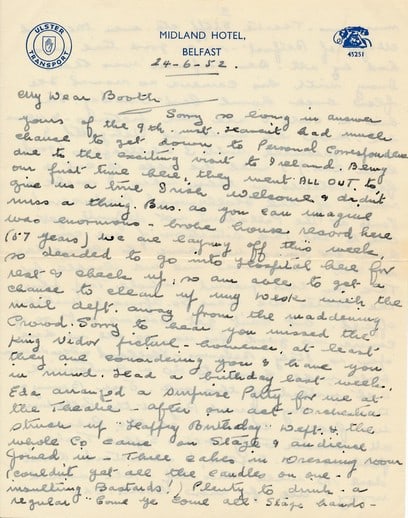 ULSTER
TRANSPORT
MIDLAND HOTEL,
BELFAST
45251
24-6-52.
My Dear Booth
Sorry so long in answer
yours of the 9th. inst. Haven't had much
chance to get down to Personal Correspondence
due to the exciting visit to Ireland. Being
our first time here, they went ALL OUT to
give us a fine Irish Welcome & didn't
miss a thing. Bus. as you can imagine
was enormous - broke house record here
(57 years) we are laying off this week,
so decided to go into Hospital here for
rest & check up, so am able to get a
chance to clean up my work with the
mail dept. away from the maddening
Crowd. Sorry to hear you missed the
King Vidor picture - however, at least
they are considering you & have you
in mind. Had a birthday last week.
Eda arranged a Surprise Party for me at
the Theatre - after our act - Orchestra
struck up "Happy Birthday" Wept. & the
whole Co came on Stage & audience
joined in - Three cakes in Dressing room
(couldn't get all the candles on one -
Bastards!) Plenty to drink - a
regular "Come ye Come all" Stage hands -